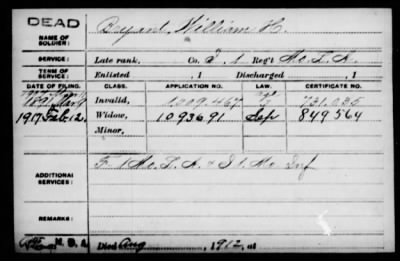 DEAD
NAME OF SOLDIER: Bryant, William H.
SERVICE: Late rank, Co. I, 1 Reg't Mo. L. A.
TERM OF SERVICE: Enlisted , 1 Discharged , 1
DATE OF FILING. CLASS. APPLICATION NO. LAW. CERTIFICATE NO.
1891 Mar 9 Invalid, 1,009.467 731.035
1917 Feb. 12, Widow, 1093691 Sep 849564
Minor,
ADDITIONAL SERVICES: F 1 Mo. L. A. & I 1. Mo Inf
REMARKS:
N. B. A. Died Aug , 1912, at